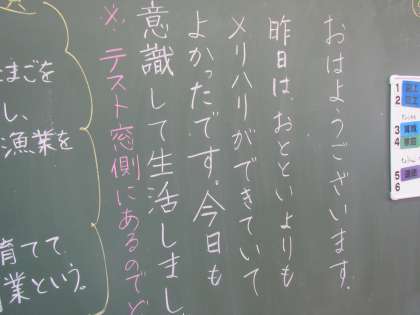 おはようございます。
昨日は、おとといよりも
メリハリができていて
よかったです。今日も
意識して生活しまし
※テスト窓側にあるのでど
たまごを
し、
漁業を
育てて
業という。
1
2
3
4
5
6